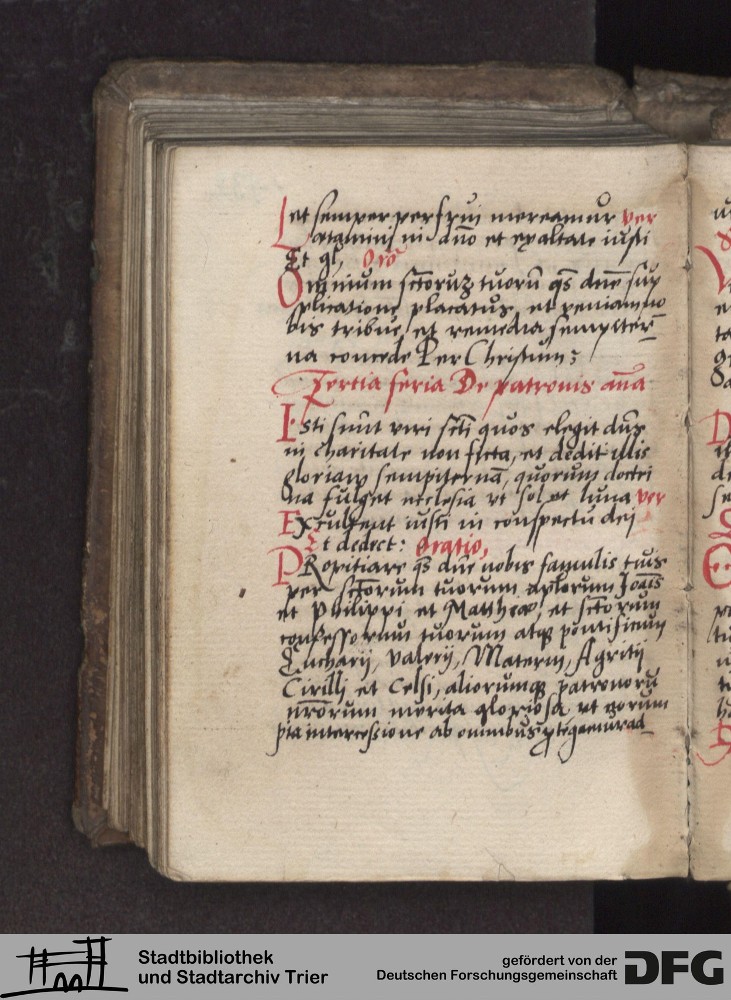 et semper perfrui mereamur ver
Lætamini in dño et exaltate iusti
Et gl, Orō
Omnium sctoruz tuorū qs dne sup
plicatione placatus, et veniam no
bis tribue, et remedia sempiter
na concede Per Christum:
Tertia feria De patronis aña
Isti sunt viri scti quos elegit dns
in charitate non ficta, et dedit illis
gloriam sempiternā, quorum doctri
na fulget ecclesia vt sol et luna ver
Exultent iusti in conspectu dei
Et delect: Oratio,
PRopitiare qs dne nobis famulis tuis
per sctorum tuorum aplorum Joañis
et Philippi et Matthei, et sctorum
confessorum tuorum atq pontificum
Eucharij, Valerij, Materni, Agritij
Cirilli et Celsi, aliorumq patronorū
nrōrum merita gloriosa vt eorum
pia intercessione ab omnibus ptegamur ad
Stadtbibliothek
und Stadtarchiv Trier
gefördert von der
Deutschen Forschungsgemeinschaft
DFG